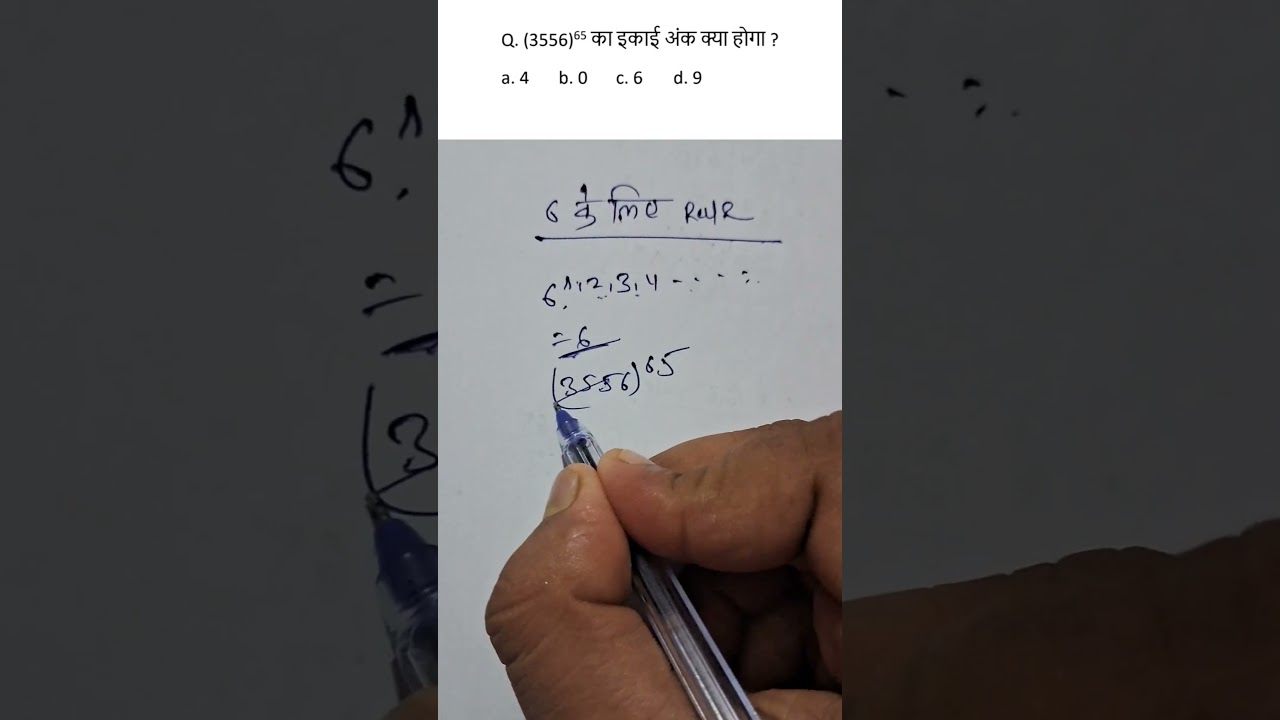 Q. (3556)⁶⁵ का इकाई अंक क्या होगा ?
a. 4 b. 0 c. 6 d. 9
6 के लिए
6¹,²,³,⁴ - - - - -
= 6
(3556)⁶⁵